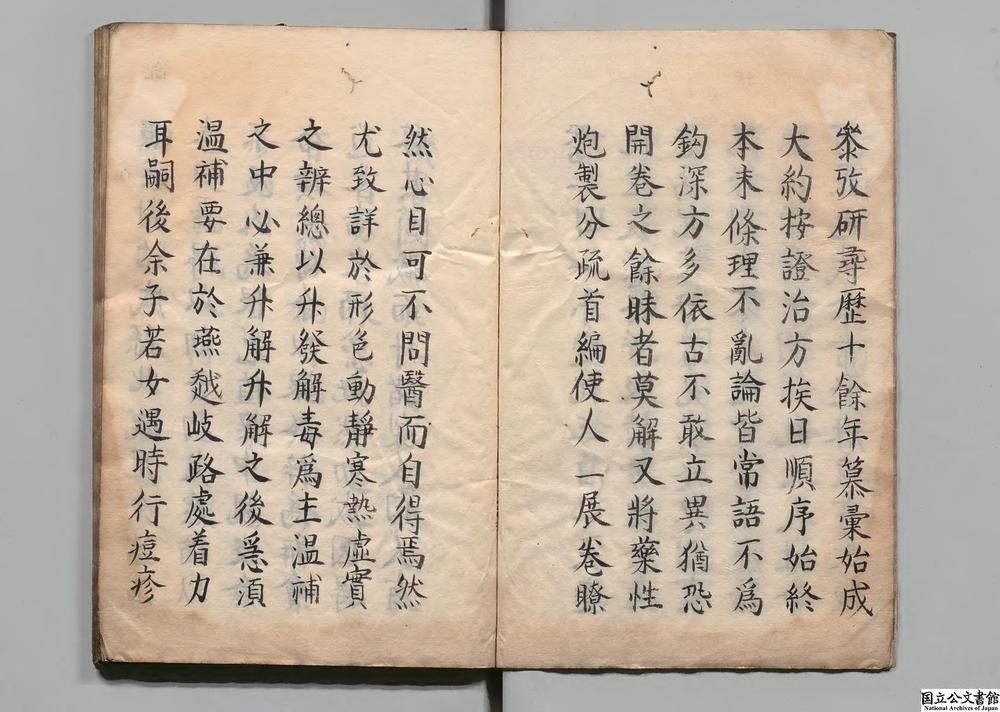 叅攷研尋歷十餘年纂彚始成
大約按證治方挨日順序始終
本末條理不亂論皆常語不爲
鈎深方多依古不敢立異猶恐
開卷之餘昧者莫解又將藥性
炮製分疏首編使人一展卷瞭
然心目可不問醫而自得焉然
尤致詳於形色動靜寒熱虛實
之辨總以升發解毒爲主溫補
之中必兼升解升解之後急須
溫補要在於燕越岐路處着力
耳嗣後余子若女遇時行痘疹
国立公文書館
National Archives of Japan